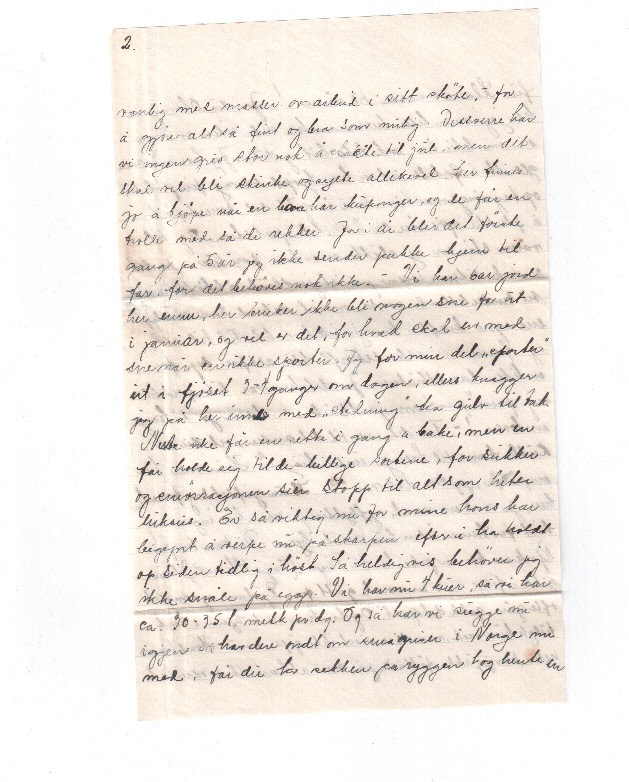 2.
vanlig med masser av arbeid i sitt sköte, – for
å gjöre alt så fint og bra som mulig. Dessverre har
vi ingen gris stor nok å slakte til jul, men det
skal vel bli skinke og sylte allikevel her finnes
jo å kjöpe når en bare har kuponger, og de får en
trolle med så de rekker. Ja i år blir det förste
gang på 5 år jeg ikke sender pakke hjem til
far, for det behöves nok ikke. – Vi har bar jord
her ennu, her bruker ikke bli nogen sne för ut
i januar, og vel er det, for hvad skal en med
sne når en ikke sporter. Jeg for min del „sporter"
ut i fjöset 3-4 ganger om dagen, ellers knegger
jeg på her inne med „stelning" fra gulv til tak.
Neste uke får en sette i gang å bake, men en
får holde sig til de billige sortene, for sukker
og smörrasjonen sier stopp til alt som heter
luksus. En så viktig mi for mine höns har
begynt å verpe nu på skarpen efter i ha holdt
op siden tidlig i höst. Så heldigvis behöver jeg
ikke smale på egg. Vi har nu 4 kuer, så vi har
ca. 30-35 l. melk pr. dg. Og så har vi sugge nu
igjen så har dere ondt om smågriser i Norge nu
med, får du ta sekken på ryggen og hente en